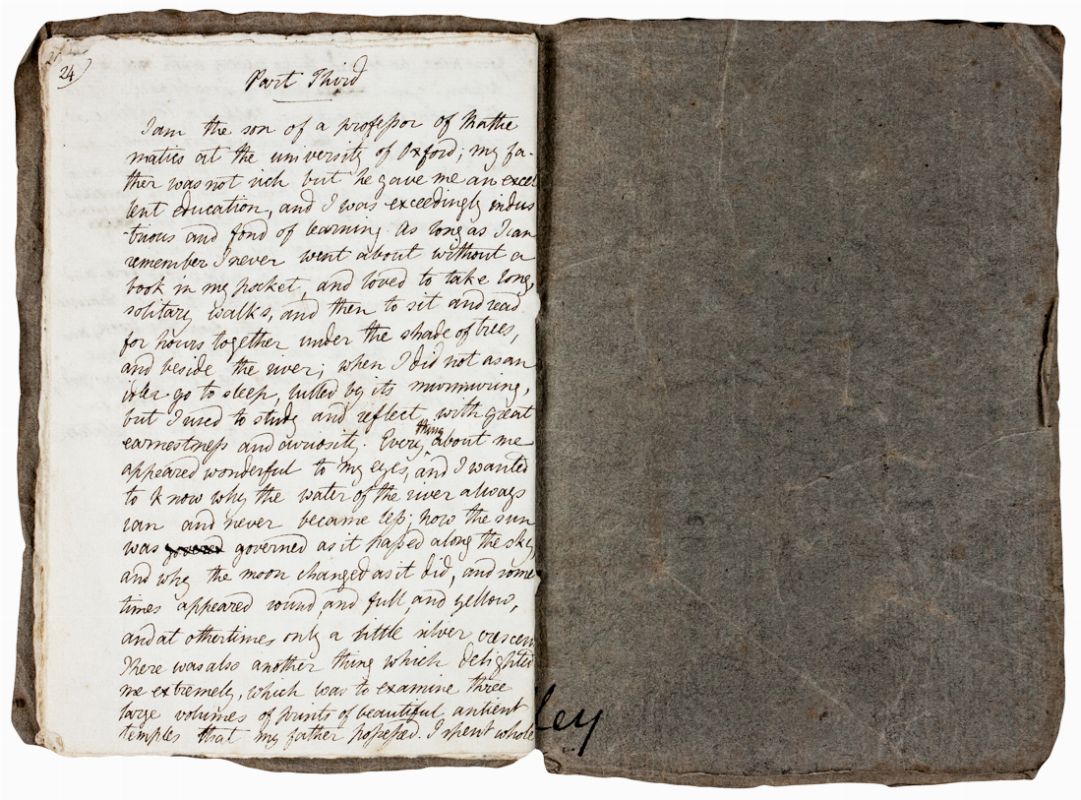 24)
Part Third
I am the son of a professor of Mathe
matics at the university of Oxford; my fa-
ther was not rich but he gave me an excel
lent education, and I was exceedingly indus
-trious and fond of learning. As long as I can
remember I never went about without a
book in my pocket, and loved to take long
solitary walks, and then to sit and read
for hours together under the shade of trees,
and beside the river; when I did not as an
idler go to sleep, lulled by its murmuring,
but I used to study and reflect with great
earnestness and curiosity. Every thing about me
appeared wonderful to my eyes, and I wanted
to know why the water of the river always
ran and never became less; how the sun
was governed as it passed along the sky,
and why the moon changed as it did, and some
times appeared round and full and yellow,
and at other times only a little silver crescen
There was also another thing which delighted
me extremely, which was to examine three
large volumes of prints of beautiful antient
temples that my father possessed. I spent whole
ley